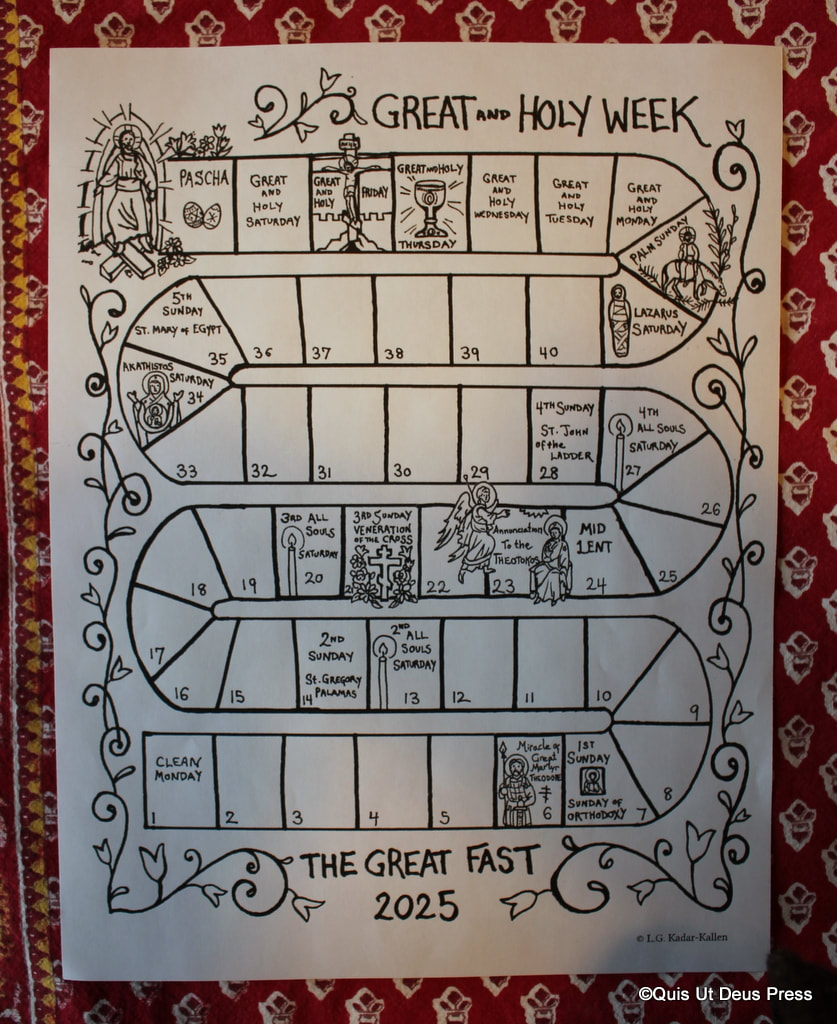 GREAT AND HOLY WEEK
PASCHA
GREAT
AND
HOLY
SATURDAY
GREAT
AND
HOLY
FRIDAY
GREAT AND HOLY
THURSDAY
GREAT
AND
HOLY
WEDNESDAY
GREAT
AND
HOLY
TUESDAY
GREAT
AND
HOLY
MONDAY
PALM SUNDAY
5TH
SUNDAY
ST. MARY OF EGYPT
35
36
37
38
39
40
LAZARUS
SATURDAY
AKATHISTOS
SATURDAY
34
33
32
31
30
29
4TH SUNDAY
ST. JOHN
of the
LADDER
28
4TH
ALL SOULS
SATURDAY
27
26
18
19
3RD ALL
SOULS
SATURDAY
20
3RD SUNDAY
VENERATION
OF THE CROSS
22
Annunciation
To the
THEOTOKOS
23
MID
LENT
24
25
17
16
15
2ND
SUNDAY
St. GREGORY
PALAMAS
14
2ND
ALL
SOULS
SATURDAY
13
12
11
10
9
CLEAN
MONDAY
1
2
3
4
5
Miracle of
Great
Martyr
THEODORE
6
1ST
SUNDAY
SUNDAY OF
ORTHODOXY
7
8
THE GREAT FAST
2025
© L.G. Kadar-Kallen
©Quis Ut Deus Press